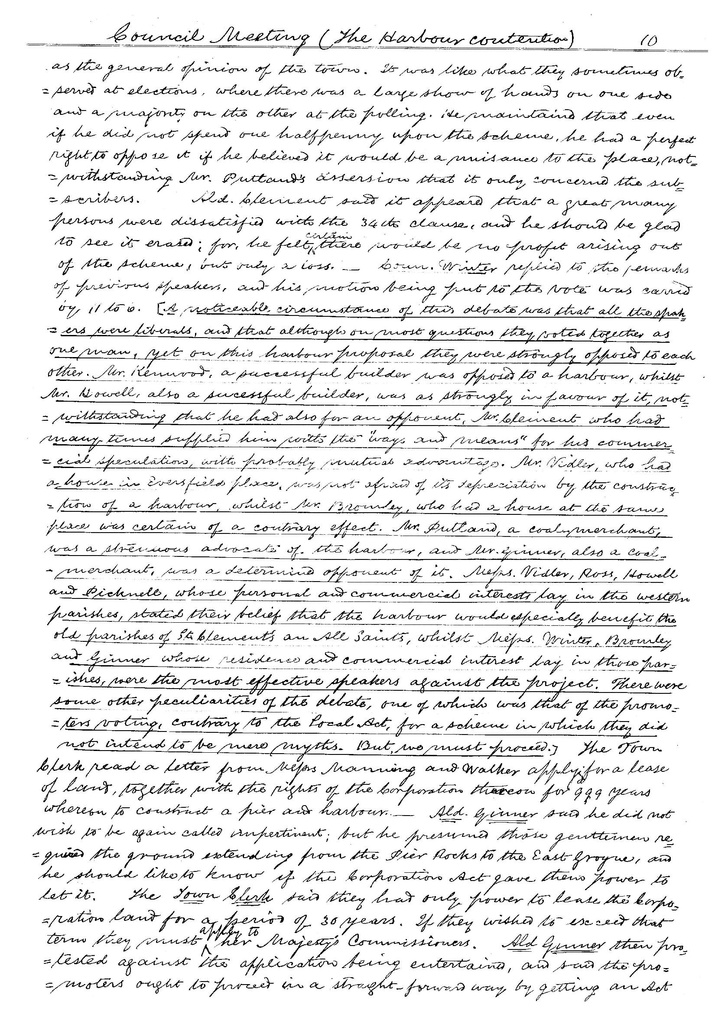 Council Meeting (The Harbour contention) 10
as the general opinion of the town. It was like what they sometimes ob-
=served at elections, where there was a large show of hands on one side
and a majority on the other at the polling. He maintained that even
if he did not spend one halfpenny upon the scheme, he had a perfect
right to oppose it if he believed it would be a nuisance to the place, not-
=withstanding Mr. Putland's assersion that it only concerned the sub-
=scribers. Ald. Clement said it appeared that a great many
persons were dissatisfied with the 34th clause, and he should be glad
to see it erased; for, he felt certain there would be no profit arising out
of the scheme, but only a loss. — Coun. Winter replied to the remarks
of previous speakers, and his motion being put to the vote was carried
by 11 to 6. [A noticeable circumstance of this debate was that all the speak-
=ers were liberals, and that although on most questions they voted together as
one man, yet on this harbour proposal they were strongly opposed to each
other. Mr. Kenwood, a successful builder was opposed to a harbour, whilst
Mr. Howell, also a sucessful builder, was as strongly in favour of it, not-
=withstanding that he had also for an opponent, Mr. Clement who had
many times supplied him with the "ways and means" for his commer-
=cial speculations, with probably mutual advantage. Mr. Vidler, who had
a house in Eversfield place, was not afraid of its depreciation by the construc-
=tion of a harbour, whilst Mr. Bromley, who had a house at the same
place was certain of a contrary effect. Mr. Putland, a coalmerchant,
was a strenuous advocate of the harbour, and Mr. Ginner, also a coal-
-merchant, was a determined opponent of it. Messs. Vidler, Ross, Howell
and Picknell, whose personal and commercial interests lay in the western
parishes, stated their belief that the harbour would especially benefit the
old parishes of St. Clements an All Saints, whilst Messs. Winter, Bromley
and Ginner whose residence and commercial interest lay in those par-
=ishes, were the most effective speakers against the project. There were
some other peculiarities of the debate, one of which was that of the promo-
=ters voting, contrary to the Local Act, for a scheme in which they did
not intend to be mere myths. But, we must proceed.] The Town
Clerk read a letter from Messs Manning and Walker applyg for a lease
of land, together with the rights of the Corporation for 999 years
whereon to construct a pier and harbour. — Ald. Ginner said he did not
wish to be again called impertinent; but he presumed those gentlemen re-
=quired the ground extending from the Pier Rocks to the East Groyne, and
he should like to know if the Corporation Act gave them power to
let it. The Town Clerk said they had only power to lease the Corpo-
=ration land for a period of 30 years. If they wished to exceed that
term they must apply to her Majesty's Commissioners. Ald Ginner then pro-
=tested against the application being entertaind, and said the pro-
=moters ought to proceed in a straght-forward way by getting an Act